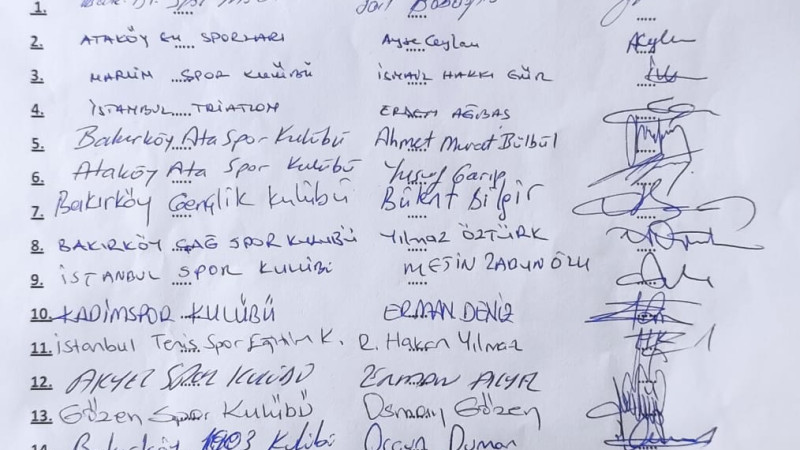 1.
2. ATAKÖY SPORLARI Ayşe Ceylan
3. SPOR KULÜBÜ İSMAİL HAKKI GÜR
4. İSTANBUL TRİATLON ERDEM AĞIBAS
5. Bakırköy Ata Spor Kulübü Ahmet Murat Bülbül
6. Ataköy Ata Spor Kulübü Yusuf Garip
7. Bakırköy Gençlik Kulübü Bülent Bilgir
8. BAKIRKÖY ÇAĞ SPOR KULÜBÜ Yılmaz ÖZTÜRK
9. İSTANBUL SPOR KULÜBÜ METİN
10. KADİMSPOR KULÜBÜ ERMAN DENİZ
11. İstanbul Tenis Spor Eğitim K. R. Hakan Yılmaz
12. AKYEL SPOR KULÜBÜ AKYEL
13. Gözen Spor Kulübü Osman Gözen
14. Bakırköy 1903 Kulübü Duman